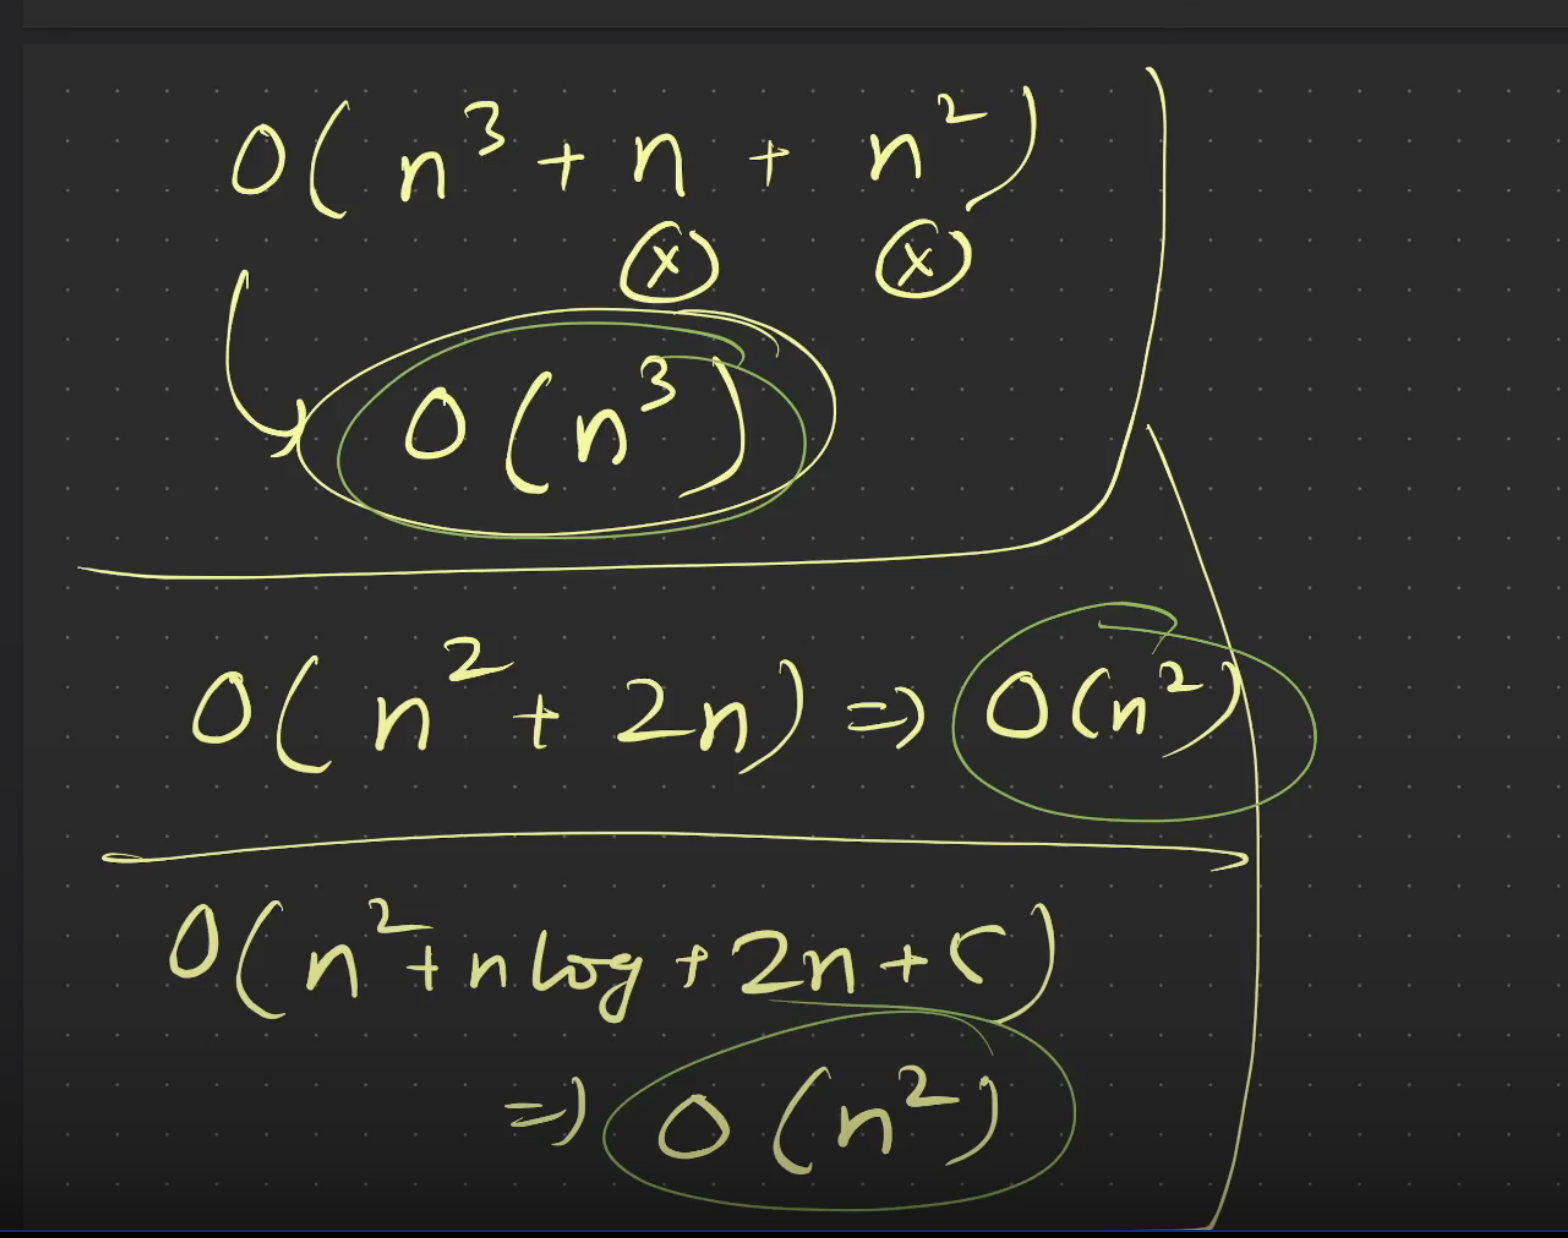 O(n³ + n + n²)
ⓧ ⓧ
O(n³)
O(n² + 2n) => O(n²)
O(n² + n log + 2n + 5)
=> O(n²)